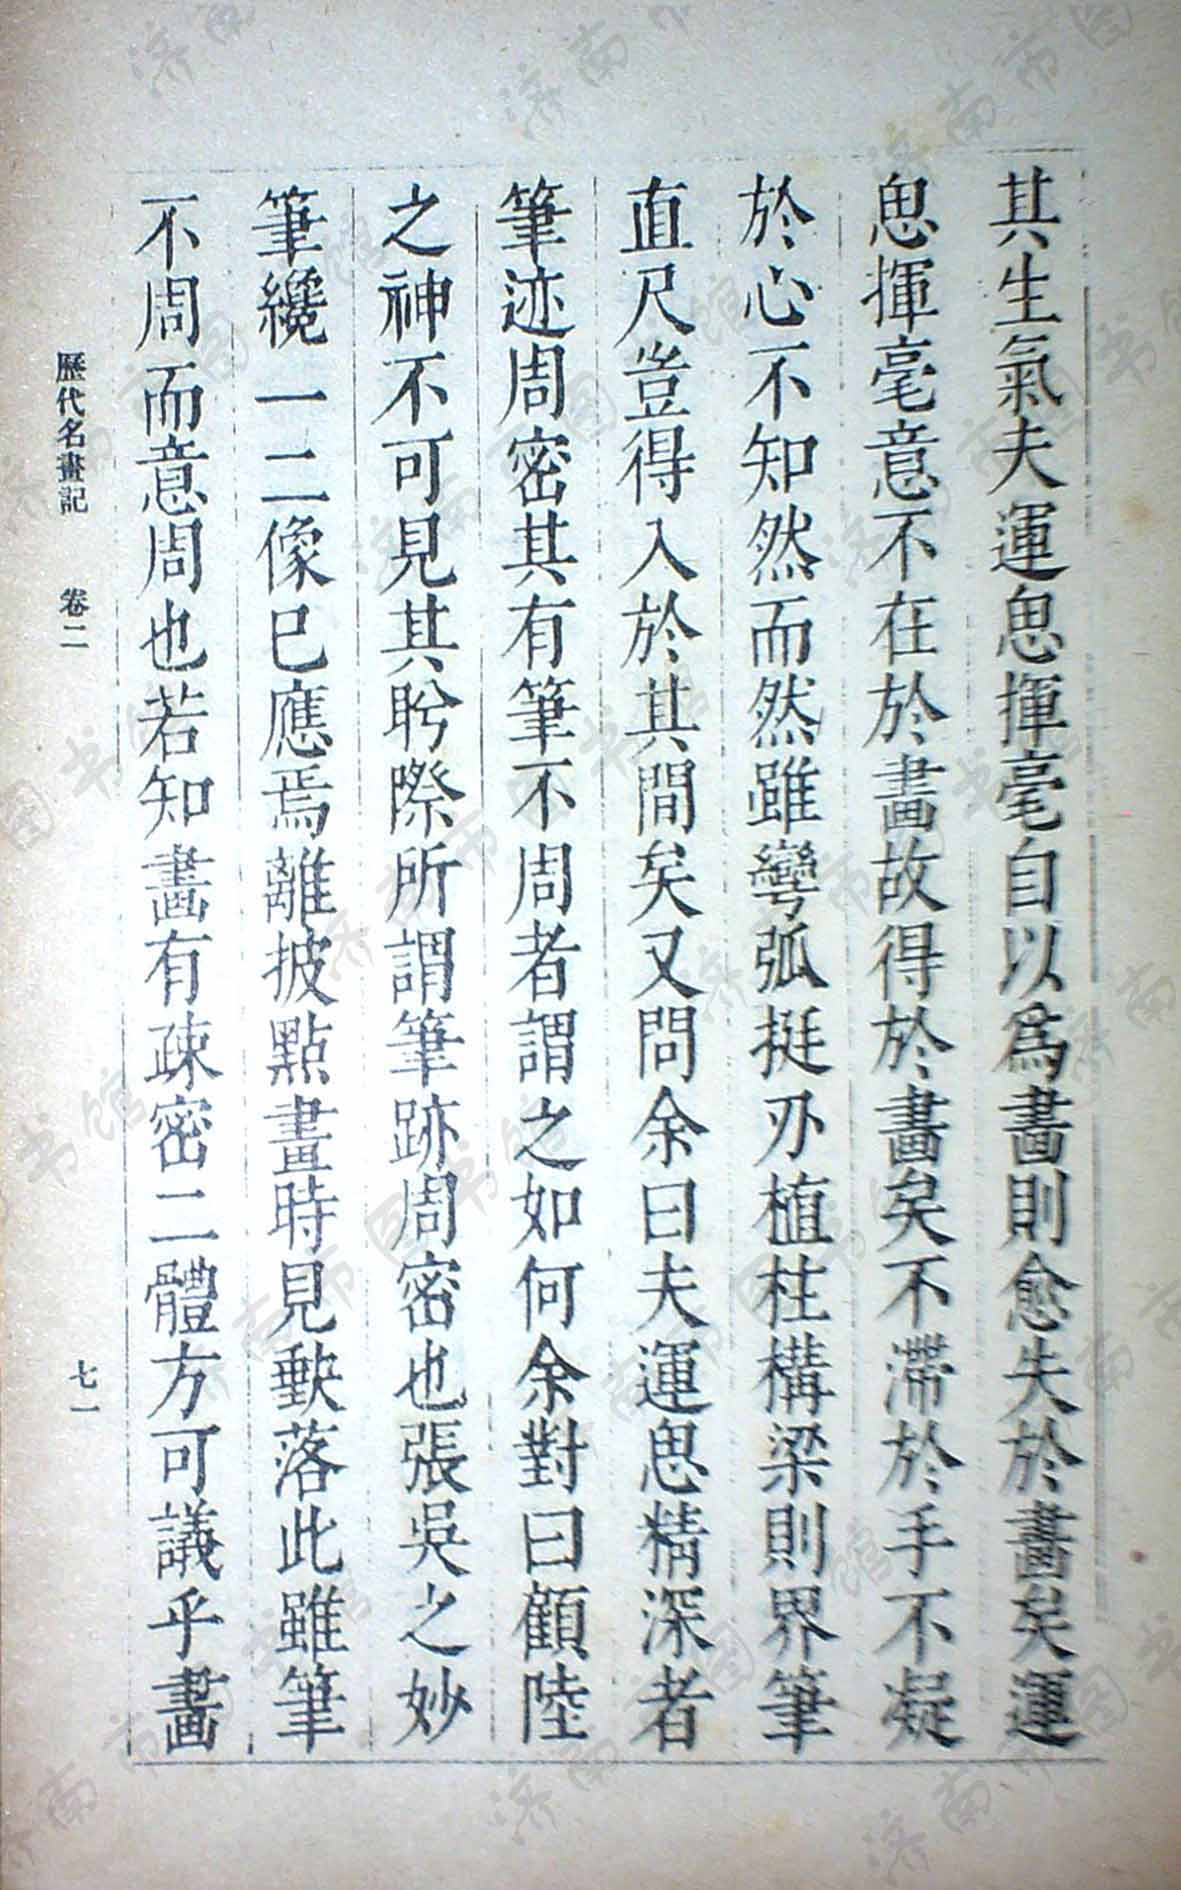 其生氣夫運思揮毫自以爲畫則愈失於畫矣運
思揮毫意不在於畫故得於畫矣不滯於手不凝
於心不知然而然雖彎弧挺刃植柱構梁則界筆
直尺豈得入於其間矣又問余曰夫運思精深者
筆迹周密其有筆不周者謂之如何余對曰顧陸
之神不可見其盻際所謂筆跡周密也張吳之妙
筆纔一二像已應焉離披點畫時見缺落此雖筆
不周而意周也若知畫有疎密二體方可議乎畫
歷代名畫記 卷二 七一
济南市图书馆